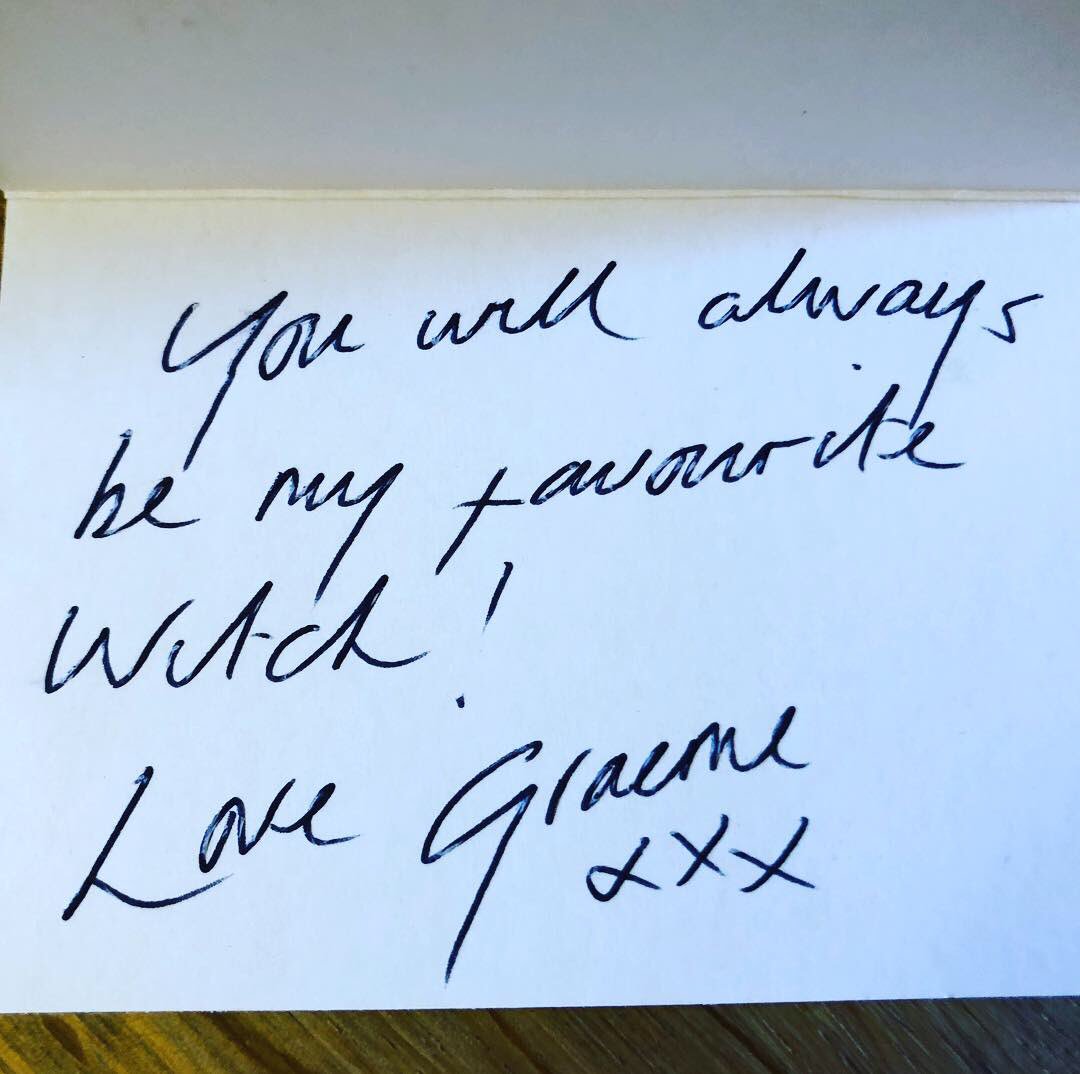 You will always
be my favourite
Witch!
Love Graeme
xxx